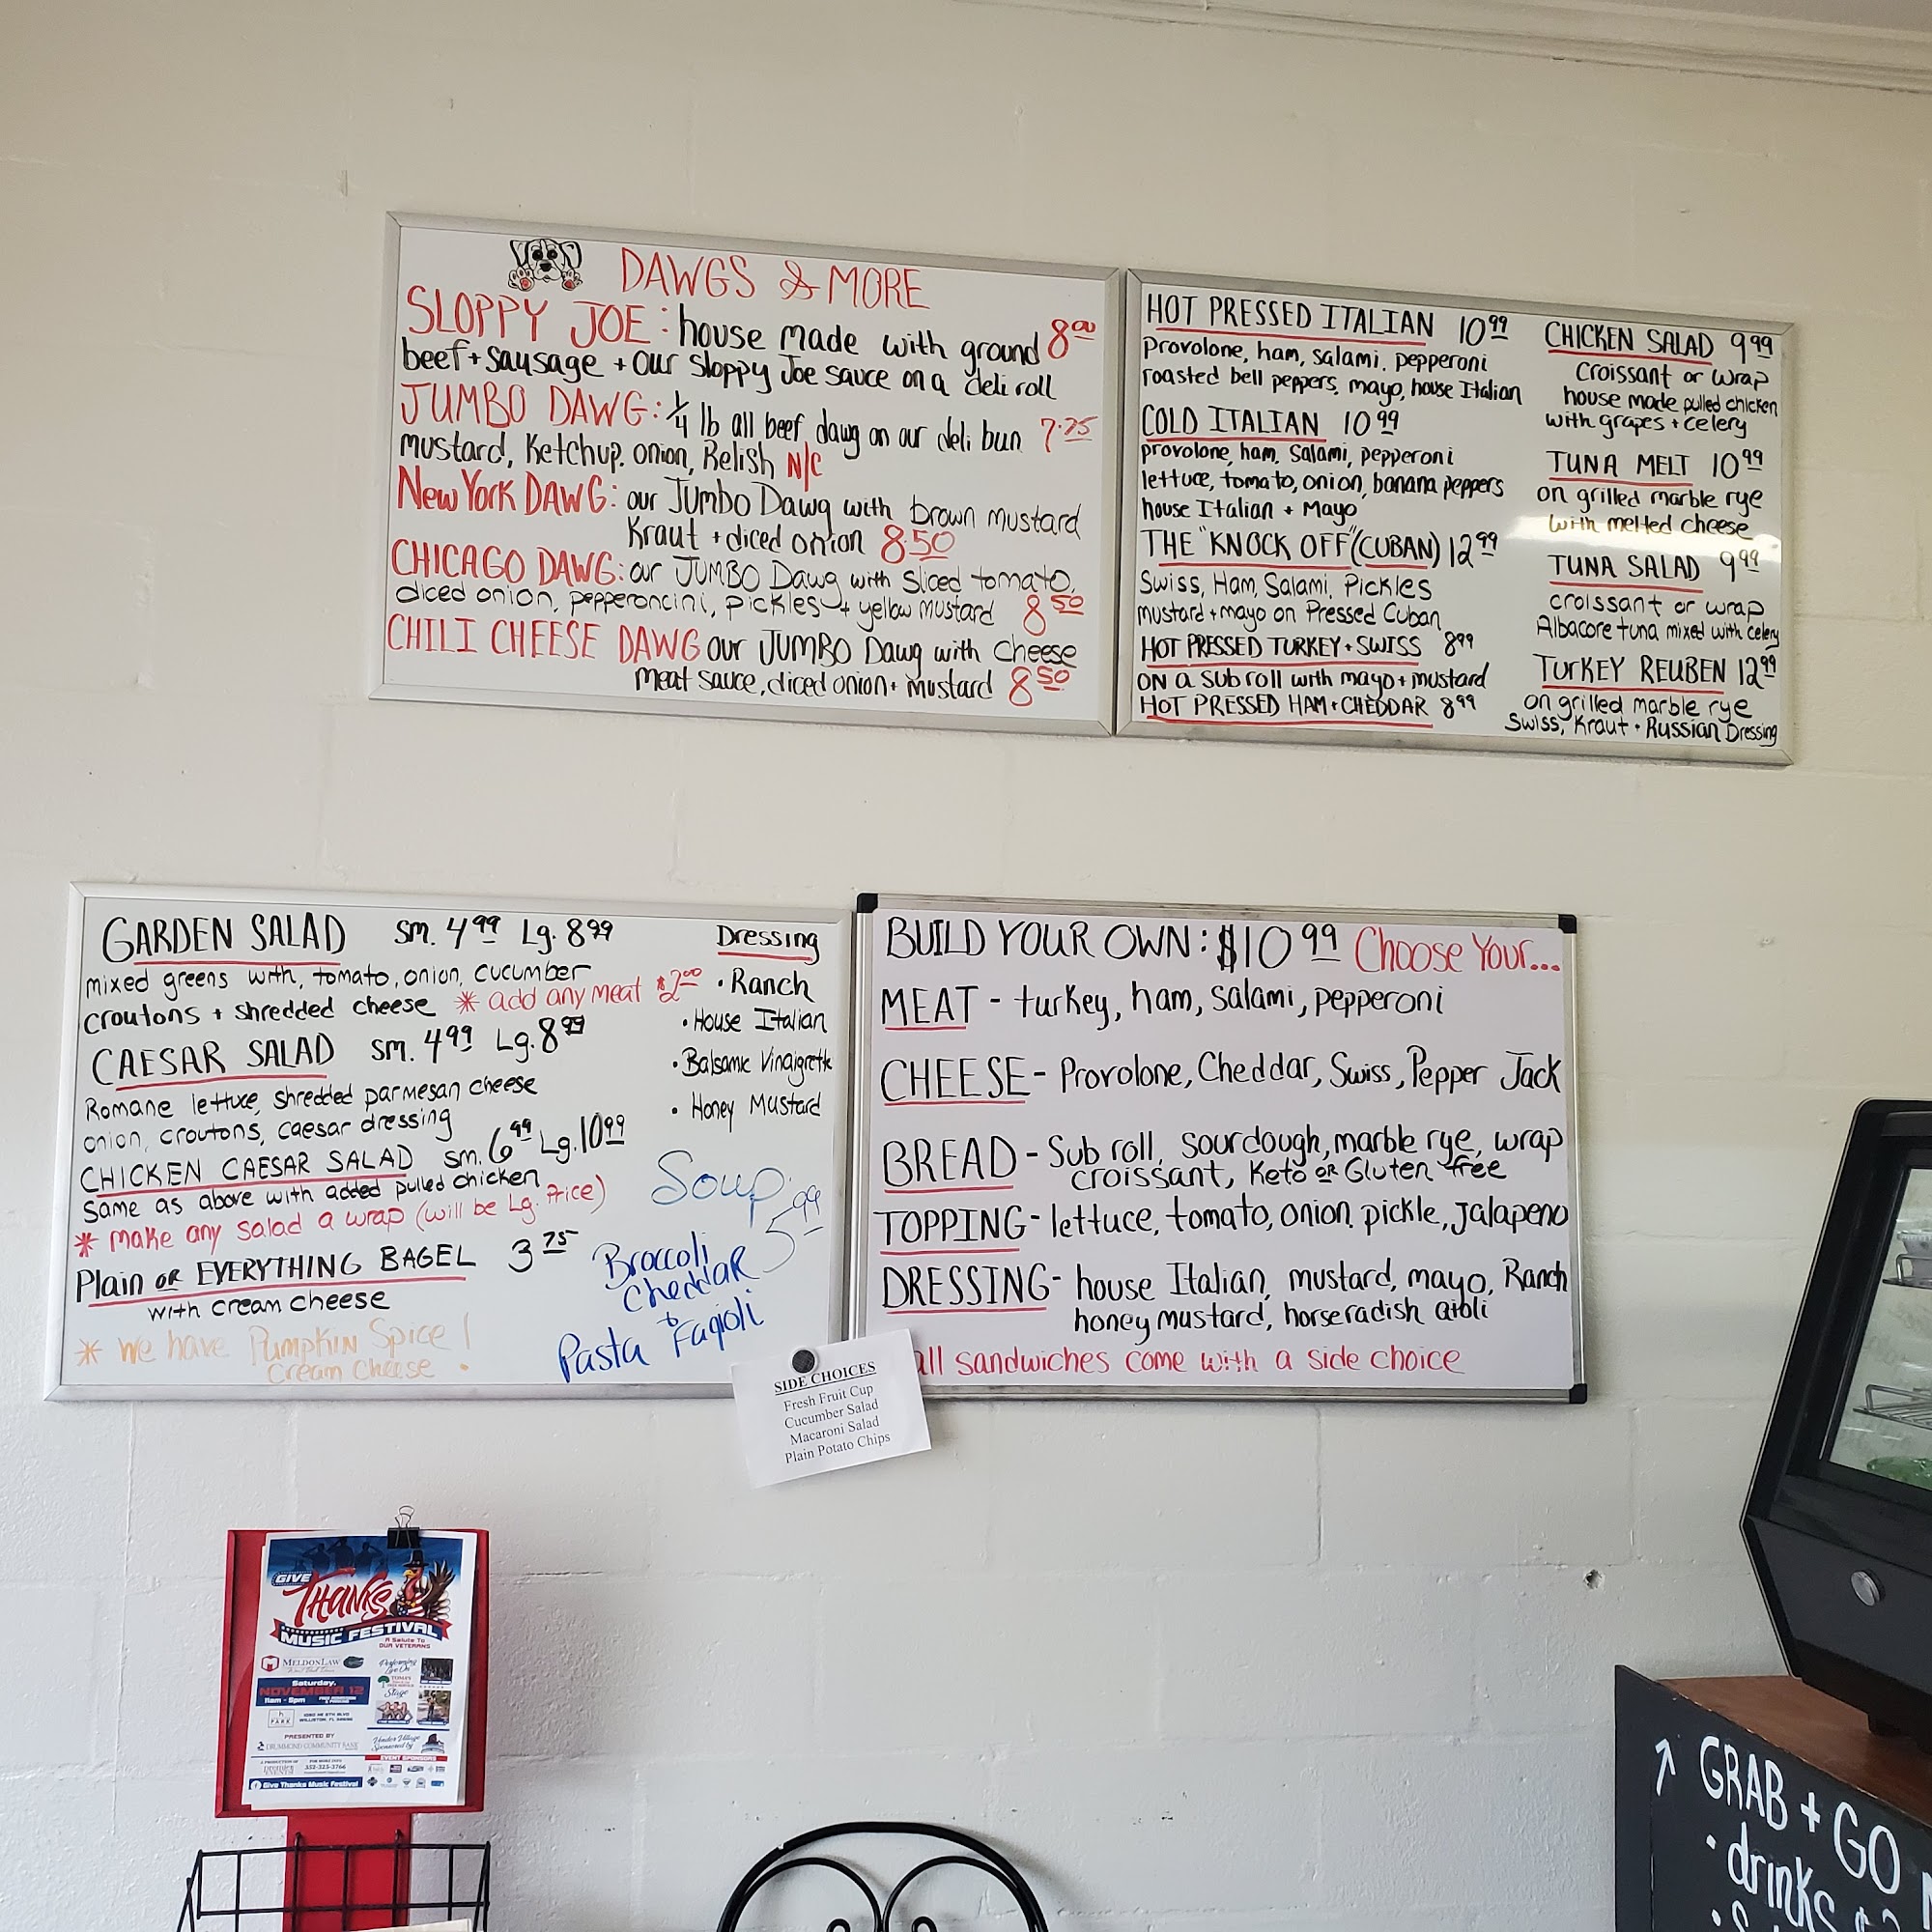 DAWGS & MORE
SLOPPY JOE: house made with ground 8.00
beef + sausage + our Sloppy Joe sauce on a deli roll
JUMBO DAWG: 1/4 lb all beef dawg on our deli bun 7.25
mustard, Ketchup, onion, Relish N/C
New York DAWG: our Jumbo Dawg with brown mustard
Kraut + diced onion 8.50
CHICAGO DAWG: our JUMBO Dawg with sliced tomato,
diced onion, pepperoncini, pickles + yellow mustard 8.50
CHILI CHEESE DAWG our JUMBO Dawg with cheese
meat sauce, diced onion + mustard 8.50
HOT PRESSED ITALIAN 10.99
Provolone, ham, salami, pepperoni
roasted bell peppers, mayo, house Italian
COLD ITALIAN 10.99
provolone, ham, Salami, pepperoni
lettuce, tomato, onion, banana peppers
house Italian + Mayo
THE "KNOCK OFF" (CUBAN) 12.99
Swiss, Ham, Salami, Pickles
mustard + mayo on Pressed Cuban
HOT PRESSED TURKEY + SWISS 8.99
ON a Sub roll with mayo + mustard
HOT PRESSED HAM + CHEDDAR 8.99
CHICKEN SALAD 9.99
Croissant or Wrap
house made pulled chicken
with grapes + celery
TUNA MELT 10.99
on grilled marble rye
with melted cheese
TUNA SALAD 9.99
croissant or wrap
Albacore tuna mixed with celery
TURKEY REUBEN 12.99
on grilled marble rye
Swiss, Kraut + Russian Dressing
GARDEN SALAD sm. 4.99 Lg. 8.99
mixed greens with, tomato, onion, cucumber
croutons + shredded cheese * add any meat $2.00
CAESAR SALAD sm. 4.99 Lg. 8.99
Romane lettuce, shredded parmesan cheese
onion, croutons, caesar dressing
CHICKEN CAESAR SALAD sm. 6.99 Lg. 10.99
Same as above with added pulled chicken
* make any salad a wrap (will be Lg. Price)
Plain or EVERYTHING BAGEL 3.75
with cream cheese
* we have Pumpkin Spice!
Cream Cheese
Dressing
• Ranch
• House Italian
• Balsamic Vinaigrette
• Honey Mustard
Soup 5.99
Broccoli
Cheddar
Pasta Fagioli
BUILD YOUR OWN: $10.99 Choose Your...
MEAT - turkey, ham, salami, pepperoni
CHEESE - Provolone, Cheddar, Swiss, Pepper Jack
BREAD - Sub roll, sourdough, marble rye, wrap
croissant, Keto or Gluten free
TOPPING - lettuce, tomato, onion, pickle, jalapeno
DRESSING - house Italian, mustard, mayo, Ranch
honey mustard, horseradish aioli
all sandwiches come with a side choice
SIDE CHOICES
Fresh Fruit Cup
Cucumber Salad
Macaroni Salad
Plain Potato Chips
GIVE
THANKS
MUSIC FESTIVAL
A Salute To
OUR VETERANS
MELDON LAW
Performing
Live On
Stage
Saturday,
NOVEMBER 12
11am - 5pm
PARK
PRESENTED BY
DRUMMOND COMMUNITY BANK
Sponsored by
EVENT SPONSORS
352-325-3766
Give Thanks Music Festival
GRAB + GO
• drinks